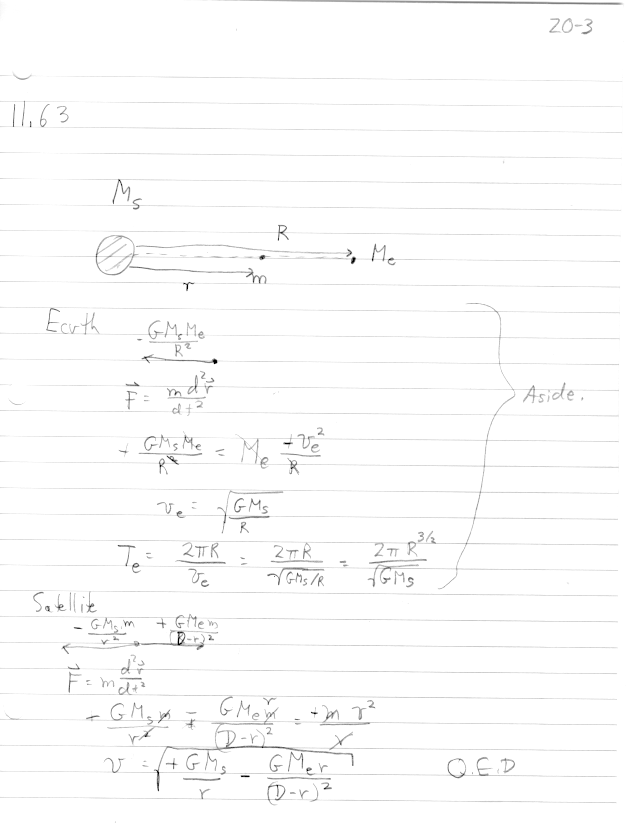 20-3
11.63
M_s
R
M_e
r
m
Earth
- GM_sM_e / R^2
F⃗ = m d^2r⃗ / dt^2
Aside.
+ GM_sM_e / R^2 = M_e +v_e^2 / R
v_e = √(GM_s / R)
T_e = 2πR / v_e = 2πR / √(GM_s/R) = 2πR^{3/2} / √(GM_s)
Satellite
- GM_sm / r^2 + GM_em / (D-r)^2
F⃗ = m d^2r⃗ / dt^2
+ GM_sm / r^2 ∓ GM_em r / (D-r)^2 = +m v^2 / r
v = √(+GM_s / r - GM_er / (D-r)^2)
Q.E.D